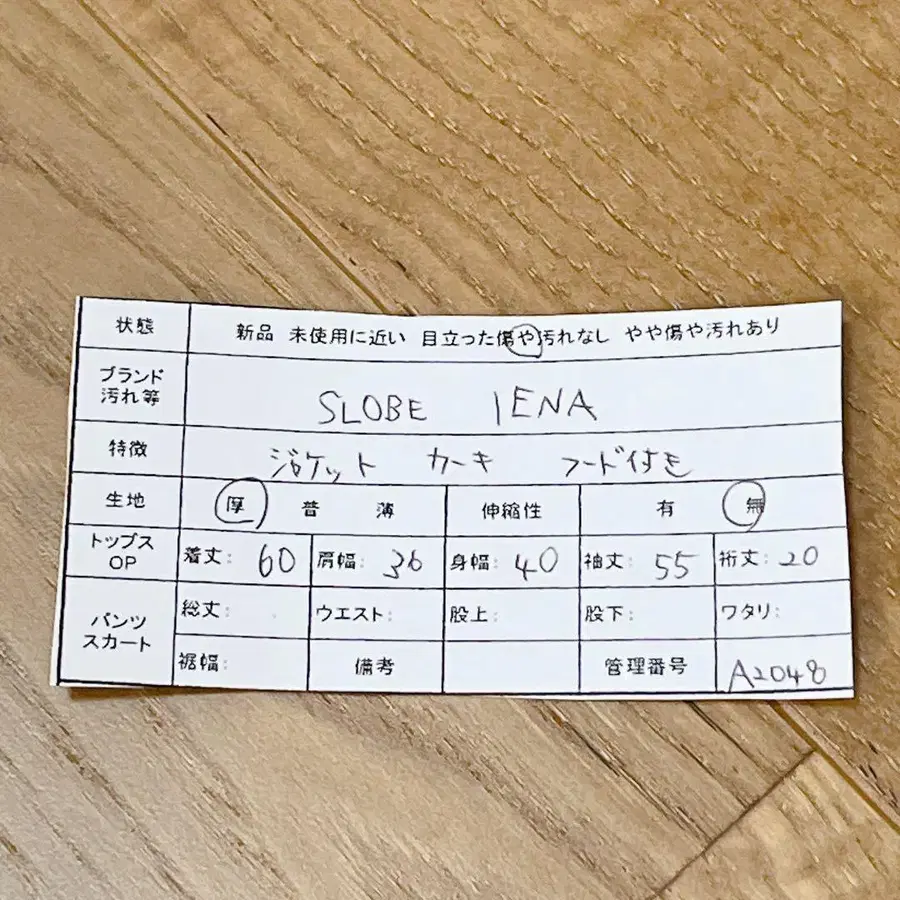 状態 新品 未使用に近い 目立った傷や汚れなし やや傷や汚れあり
ブランド
汚れ等
SLOBE IENA
特徴 ジャケット カーキ フード付き
生地 厚 普 薄 伸縮性 有 無
トップス
OP
着丈: 60 肩幅: 36 身幅: 40 袖丈: 55 裄丈: 20
パンツ
スカート
総丈: ウエスト: 股上: 股下: ワタリ:
裾幅: 備考 管理番号 A2048